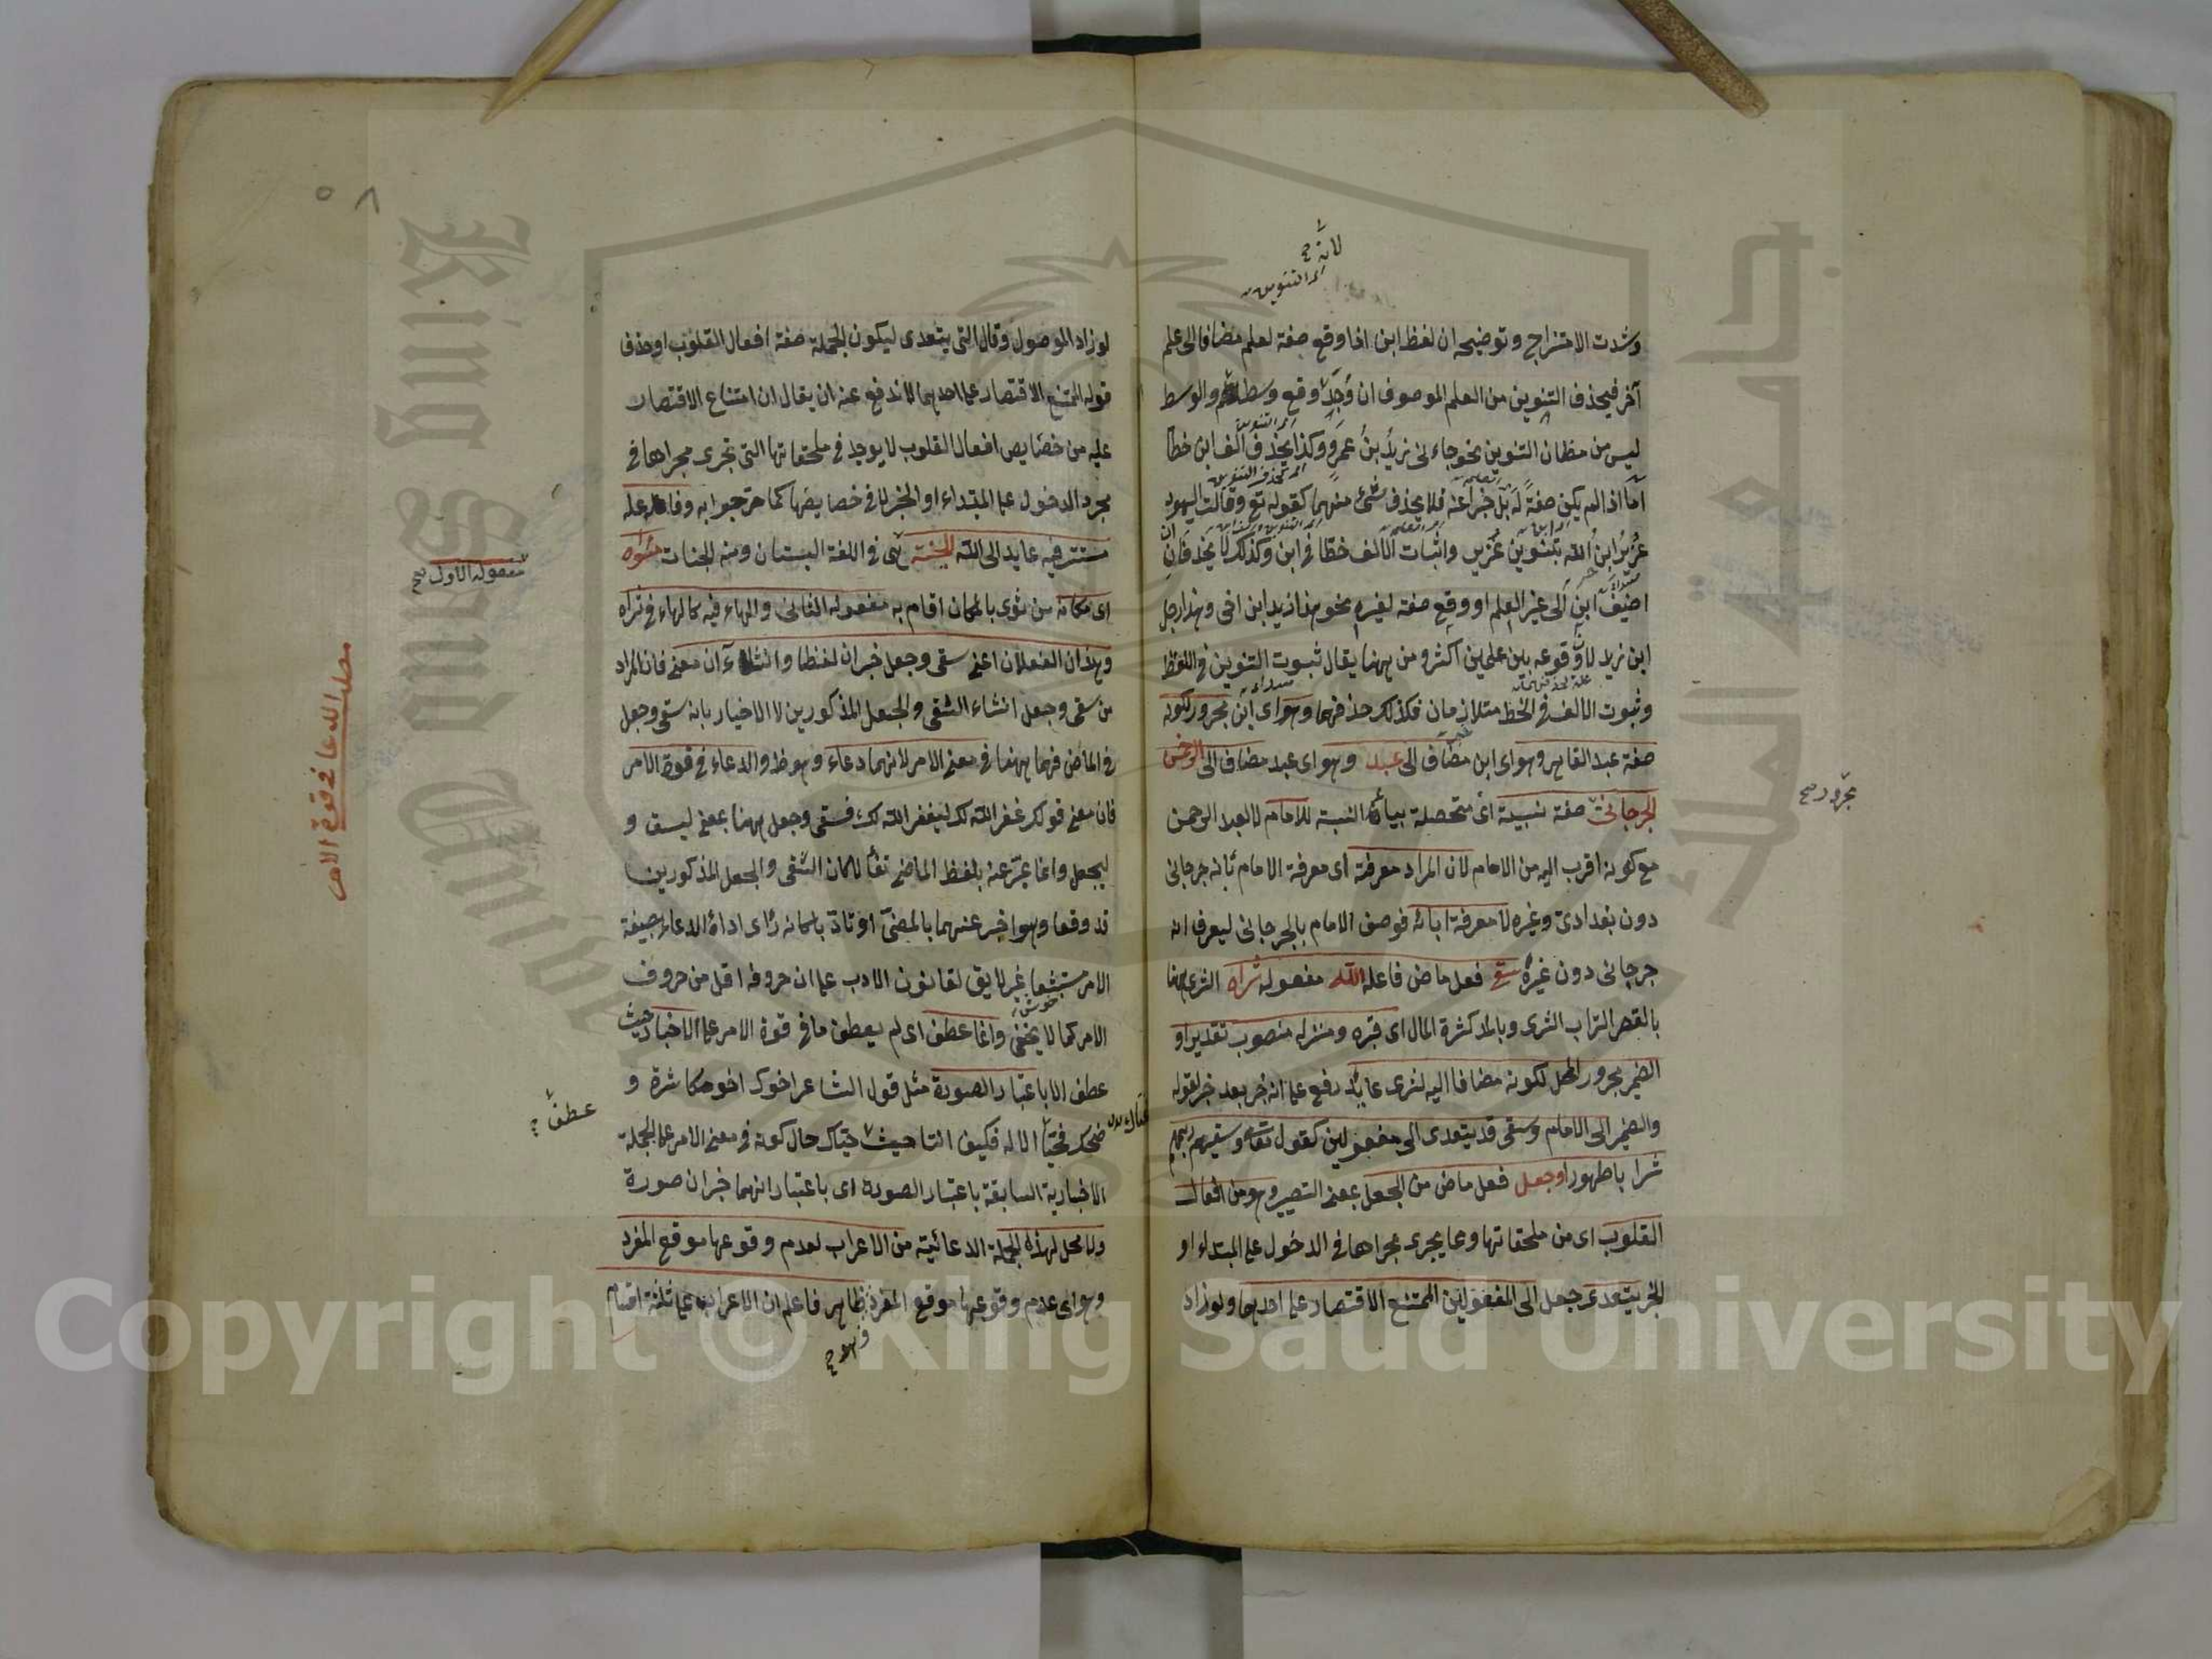 لانه صح
اى التنوين
وشدت الامتزاج وتوضيحه ان لفظ ابن اذا وقع صفة لعلم مضافا الى علم
آخر فيحذف التنوين من العلم الموصوف ان وجد وقع وسط والوسط
ليس من مظان التنوين نحو جاءنى زيد بن عمرو وكذا يحذف الف ابن خطا
اما اذا لم يكن صفة له بل خبرا عنه فلا يحذف شئ منهما كقوله تع وقالت اليهود
عزير ابن الله بتنوين عزير واثبات الالف خطا فى ابن وكذلك لا يحذفان ان
اضيف ابن الى غير العلم او وقع صفة لغيره نحو هذا زيد ابن اخى وهذا رجل
ابن زيد لان وقوعه بين علمين اكثر ومن ههنا يقال ثبوت التنوين فى اللفظ
وثبوت الالف فى الخط متلازمان فكذلك حذفهما وهو اى ابن مجرور لكونه
صفة عبد القاهر وهو اى ابن مضاف الى عبد وهو اى عبد مضاف الى الرحمن
الجرجانى صفة نسبية اى متحصلة بياء النسبة للامام لا لعبد الرحمن
مع كونه اقرب اليه من الامام لان المراد معرفته اى معرفة الامام بانه جرجانى
دون بغدادى وغيره لا معرفة ابائه فوصف الامام بالجرجانى ليعرف انه
جرجانى دون غيره سقى فعل ماض فاعله الله مفعوله ثراه الثرى ههنا
بالقصر التراب الثرى وبالمد كثرة المال اى قبره ومنزله منصوب تقديرا و
الضمير مجرور المحل لكونه مضافا اليه لثرى عايد رفع على انه خبر بعد خبر لقوله
والضمير الى الامام وسقى قد يتعدى الى مفعولين كقوله تعالى وسقيهم ربهم
شرابا طهورا وجعل فعل ماض من الجعل بمعنى التصيير وهو من افعال
القلوب اى من ملحقاتها ومما يجرى مجراها فى الدخول على المبتداء او
الخبر يتعدى جعل الى المفعولين الممتنع الاقتصار على احدهما ولو زاد
مجرور صح
٥٨
لو زاد الموصول وقال التى يتعدى ليكون الجملة صفة افعال القلوب او حذف
قوله الممتنع الاقتصار على احدهما لاندفع عنه ان يقال ان امتناع الاقتصار
عليه من خصايص افعال القلوب لا يوجد فى ملحقاتها التى تجرى مجراها فى
مجرد الدخول على المبتداء او الخبر لا فى خصايصها كما صرحوا به وفاعله
مستتر فيه عايد الى الله الجنة هى فى اللغة البستان ومنه الجنات مثواه
اى مكانه من ثوى بالمكان اقام به مفعوله الثانى والهاء فيه كالهاء فى ثراه
وهذان الفعلان اعنى سقى وجعل خبران لفظا وانشاءآن معنى فان المراد
من سقى وجعل انشاء السقى والجعل المذكورين لا الاخبار بانه سقى وجعل
فى الماضى فهما ههنا فى معنى الامر لانهما دعاء وهو ظ والدعاء فى قوة الامر
فان معنى قولك غفر الله لك ليغفر الله لك فسقى وجعل ههنا بمعنى ليسق و
ليجعل وانما عبر عنه بلفظ الماضى تفألا كان السقى والجعل المذكورين
قد وقعا وهو اخبر عنهما بالمضى او تادبا لانه راى اداة الدعاء بصيغة
الامر مستبشعا غير لايق لقانون الادب على ان حروفه اقل من حروف
الامر كما لا يخفى وانما عطف اى لم يعطف ما فى قوة الامر على الاخبار حيث
عطف الا باعتبار الصورة مثل قول الشاعر اخوك اخو مكاشرة و
ضحك فحيا الاله فكيف انتا حيث حياك حال كونه فى معنى الامر على الجملة
الاخبارية السابقة باعتبار الصورة اى باعتبار انهما خبران صورة
ولا محل لهذه الجملة الدعائية من الاعراب لعدم وقوعها موقع المفرد
وهو اى عدم وقوعها موقع المفرد ظاهر فاعلم ان الاعراب على ثلثة اقسام
مفعوله الاول صح
مطلب الدعا فى قوة الامر
عطف صح